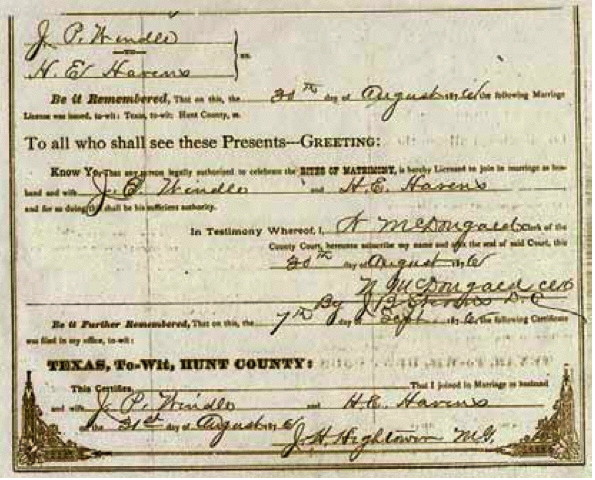 J. P. Windle
—TO—
H. E. Havens
ss.
Be it Remembered, That on this, the 30th day of August 1876 the following Marriage
License was issued, to-wit: Texas, to-wit: Hunt County, ss.
To all who shall see these Presents—GREETING:
Know Ye, That any person legally authorized to celebrate the RITES OF MATRIMONY, is hereby Licensed to join in marriage as hus-
band and wife J. P. Windle and H. E. Havens
and for so doing this shall be his sufficient authority.
In Testimony Whereof, I, N McDougald Clerk of the
County Court, hereunto subscribe my name and affix the seal of said Court, this
30th day of August 1876
N McDougald
By J. B. D. C
Be it Further Remembered, That on this, the 7th day of Sept 1876, the following Certificate
was filed in my office, to-wit:
TEXAS, To-Wit, HUNT COUNTY:
This Certifies, That I joined in Marriage as husband
and wife J. P. Windle and H. E. Havens
on the 31st day of August 1876
J. H. Hightower M.G.